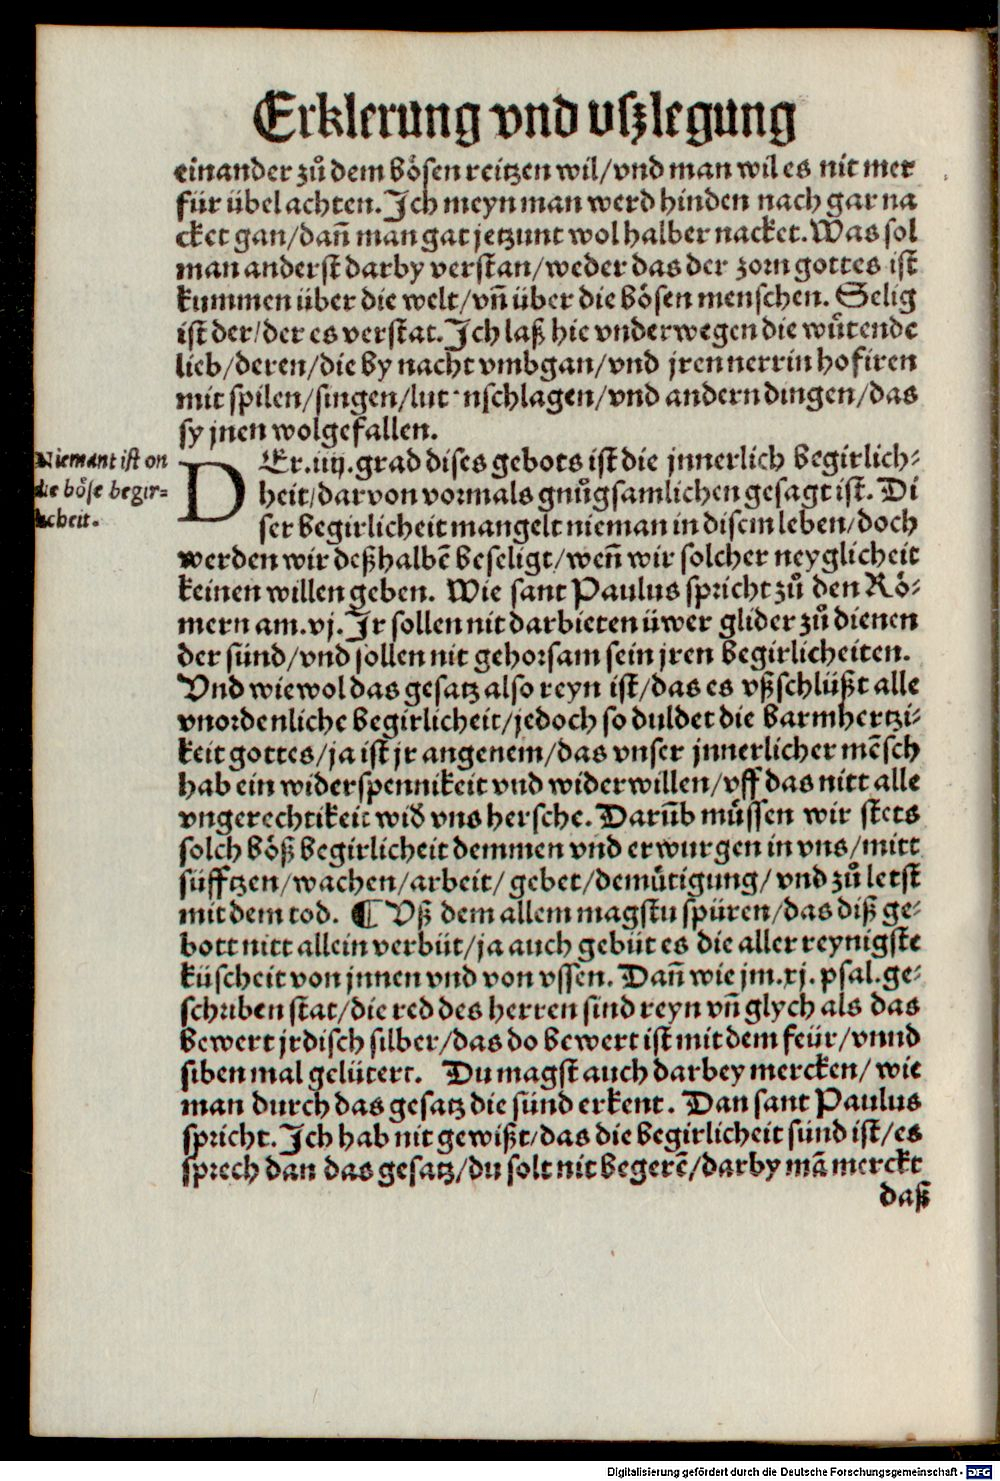 Erklerung vnd vſzlegung
einander zuͦ dem boͤsen reitzen wil/vnd man wil es nit mer
für übel achten. Ich meyn man werd hinden nach gar na
cket gan/dañ man gat jetzunt wol halber nacket. Was sol
man anderst darby verstan/weder das der zorn gottes ist
kummen über die welt/vñ über die boͤsen menschen. Selig
ist der/der es verstat. Ich laß hie vnderwegen die wuͤtende
lieb/deren/die by nacht vmbgan/vnd jren nerrin hofiren
mit spilen/singen/lut nschlagen/vnd andern dingen/das
sy jnen wolgefallen.
Niemant ist on
die boͤse begir-
licheit.
DEr.iiij.grad dises gebots ist die jnnerlich begirlich-
heit/darvon vormals gnuͦgsamlichen gesagt ist. Di
ser begirlicheit mangelt nieman in disem leben/doch
werden wir deßhalbẽ beseligt/weñ wir solcher neyglicheit
keinen willen geben. Wie sant Paulus spricht zuͦ den Roͤ-
mern am.vj. Ir sollen nit darbieten üwer glider zuͦ dienen
der sünd/vnd sollen nit gehorsam sein jren begirlicheiten.
Vnd wiewol das gesatz also reyn ist/das es vßschlüßt alle
vnordenliche begirlicheit/jedoch so duldet die barmhertzi-
keit gottes/ja ist jr angenem/das vnser jnnerlicher mẽsch
hab ein widerspennikeit vnd widerwillen/vff das nitt alle
vngerechtikeit wið vns hersche. Darũb muͤssen wir stets
solch boͤß begirlicheit demmen vnd erwurgen in vns/mitt
süfftzen/wachen/arbeit/gebet/demuͤtigung/vnd zuͦ letst
mit dem tod. ¶ Vß dem allem magstu spüren/das diß ge-
bott nitt allein verbüt/ja auch gebüt es die aller reynigste
küscheit von jnnen vnd von vssen. Dañ wie jm.xj. psal.ge-
schriben stat/die red des herren sind reyn vñ glych als das
bewert jrdisch silber/das do bewert ist mit dem feür/vnnd
siben mal gelütert. Du magst auch darbey mercken/wie
man durch das gesatz die sünd erkent. Dan sant Paulus
spricht. Ich hab nit gewißt/das die begirlicheit sünd ist/es
sprech dan das gesatz/du solt nit begerẽ/darby mã merckt
daß
Digitalisierung gefördert durch die Deutsche Forschungsgemeinschaft - DFG